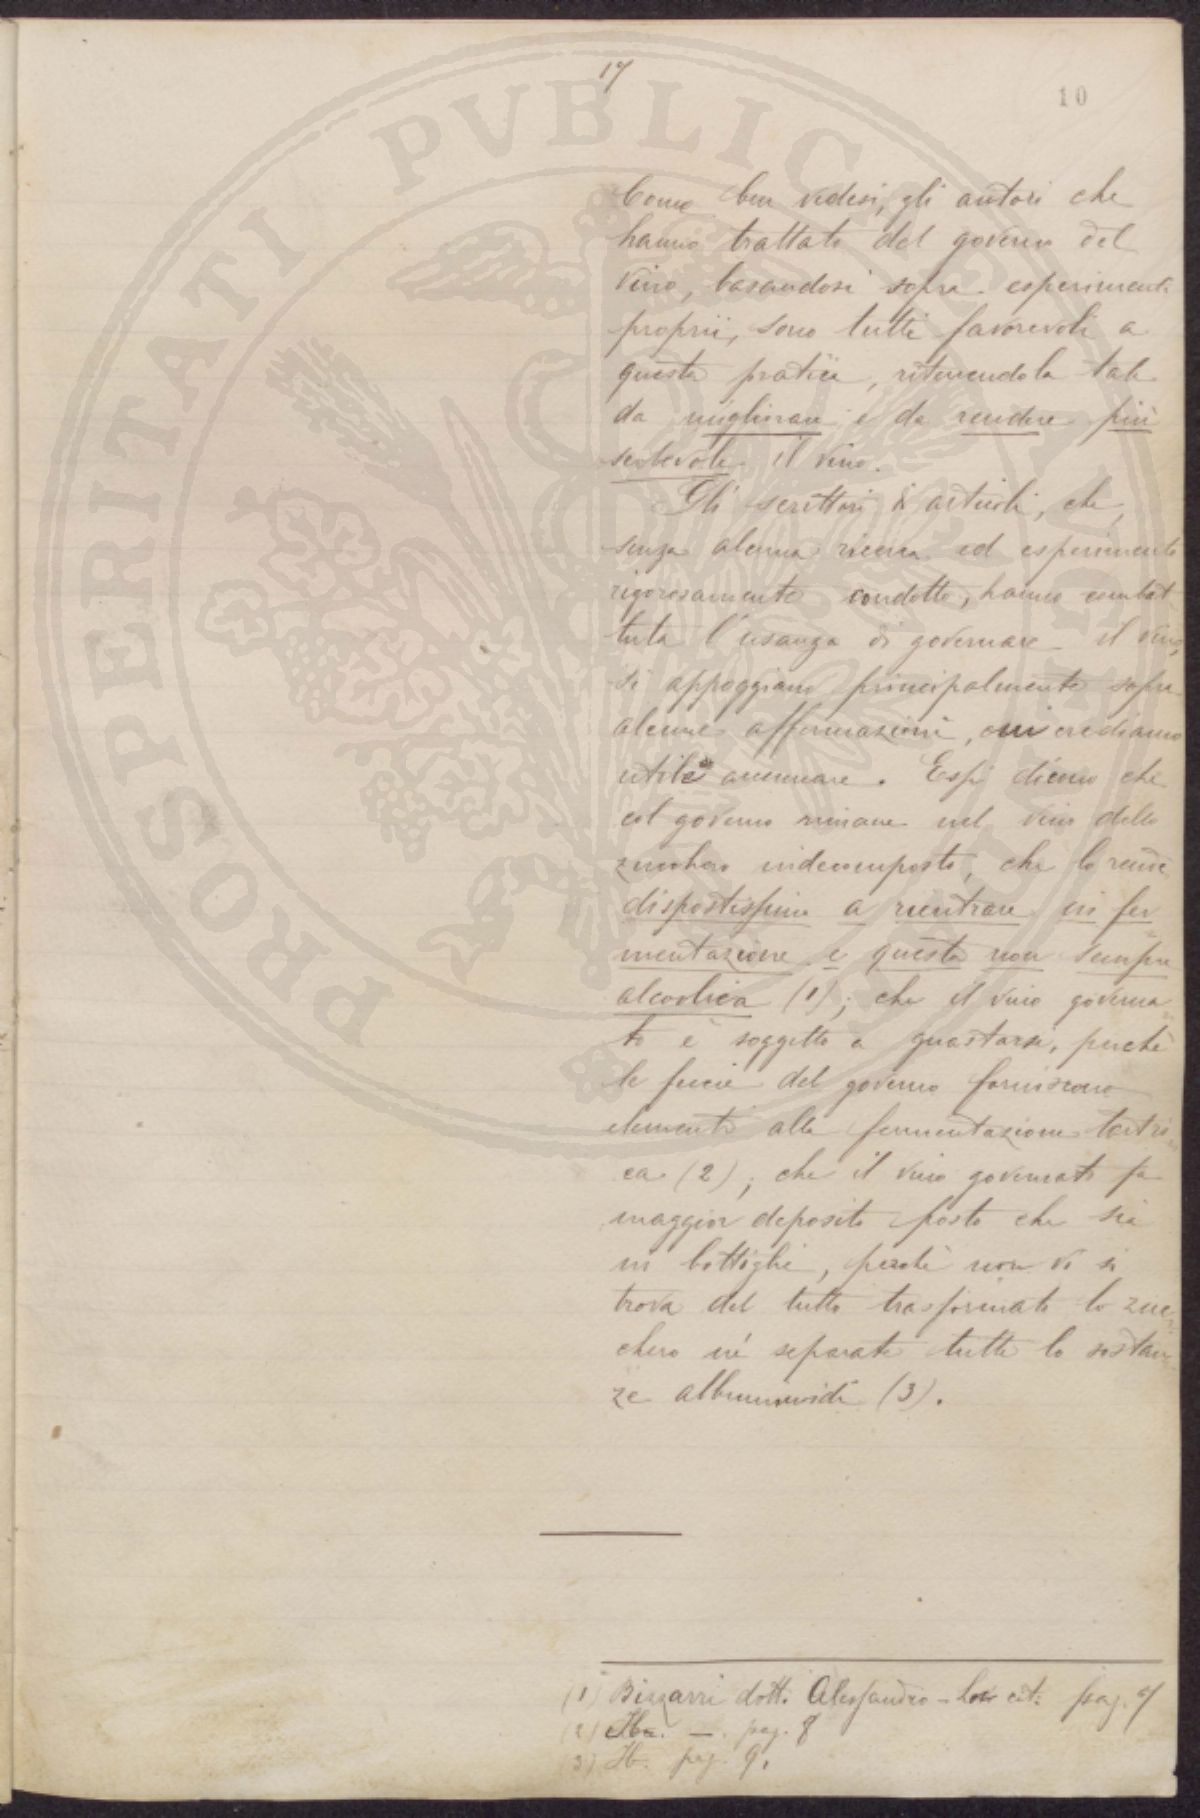 17
10
Come ben vedesi, gli autori che
hanno trattato del governo del
vino, basandosi sopra esperimenti
proprii, sono tutti favorevoli a
questa pratica, ritenendola tale
da migliorare e da rendere più
serbevole il vino.
Gli scrittori di articoli, che,
senza alcuna ricerca ed esperimento
rigorosamente condotto, hanno combat-
tuta l'usanza di governare il vino,
si appoggiano principalmente sopra
alcune affermazioni, cui crediamo
utile accennare. Essi dicono che
col governo rimane nel vino dello
zucchero indecomposto, che lo rende
dispostissimo a rientrare in fer
mentazione e questa non sempre
alcoolica (1); che il vino governa
to è soggetto a guastarsi, perchè
le feccie del governo forniscono
elementi alla fermentazione tartri
ca (2); che il vino governato fa
maggior deposito posto che sia
in bottiglie, perchè non vi si
trova del tutto trasformato lo zuc
chero nè separate tutte le sostan
ze albuminoidi (3).
(1) Bizzarri dott. Alessandro - Loc cit. pag. 7
(2) Ib. — . pag. 8
(3) Ib. pag. 9.
PROSPERITATI PVBLICAE